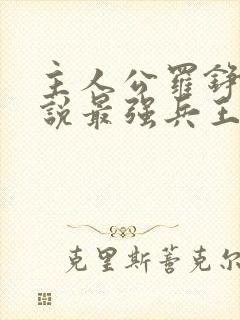 主人公罗錚
說最强兵王
克里斯蒼克尔